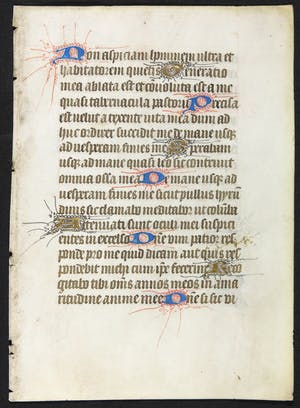 Non aspiciam hominem ultra et
habitatorem quietis Generatio
mea ablata est et convoluta est a me
quasi tabernaculum pastorum Precisa
est velut a texente vita mea dum ad
huc ordirer succidit me de mane usqz
ad vesperam finies me Sperabam
usqz ad mane quasi leo sic contrivit
omnia ossa mea De mane usqz ad
vesperam finies me sicut pullus hyrun
dinis sic clamabo meditabor ut columba
Attenuati sunt oculi mei suspici
entes in excelso Dne vim patior res
ponde pro me quid dicam aut quid res
pondebit michi cum ipse fecerim Reco
gitabo tibi oms annos meos in ama
ritudine anime mee Dne si sic vi